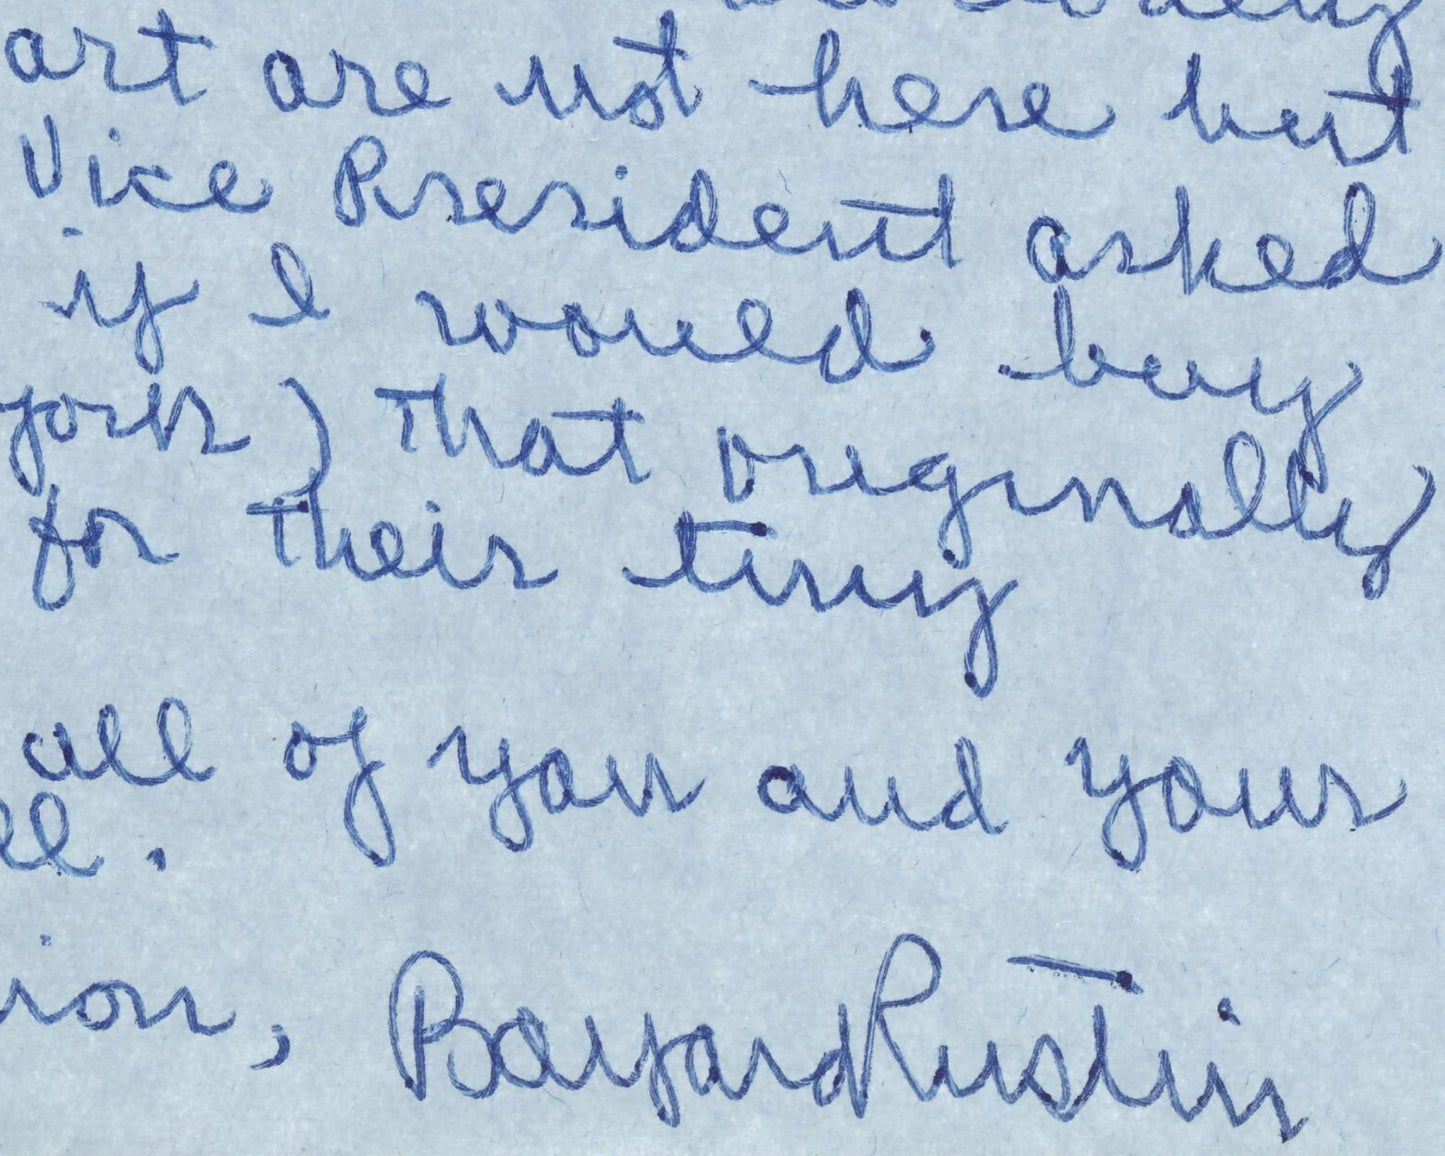 art are not here but
Vice President asked
if I would buy
york) that originally
for their tiny
all of you and your
Bayard Rustin